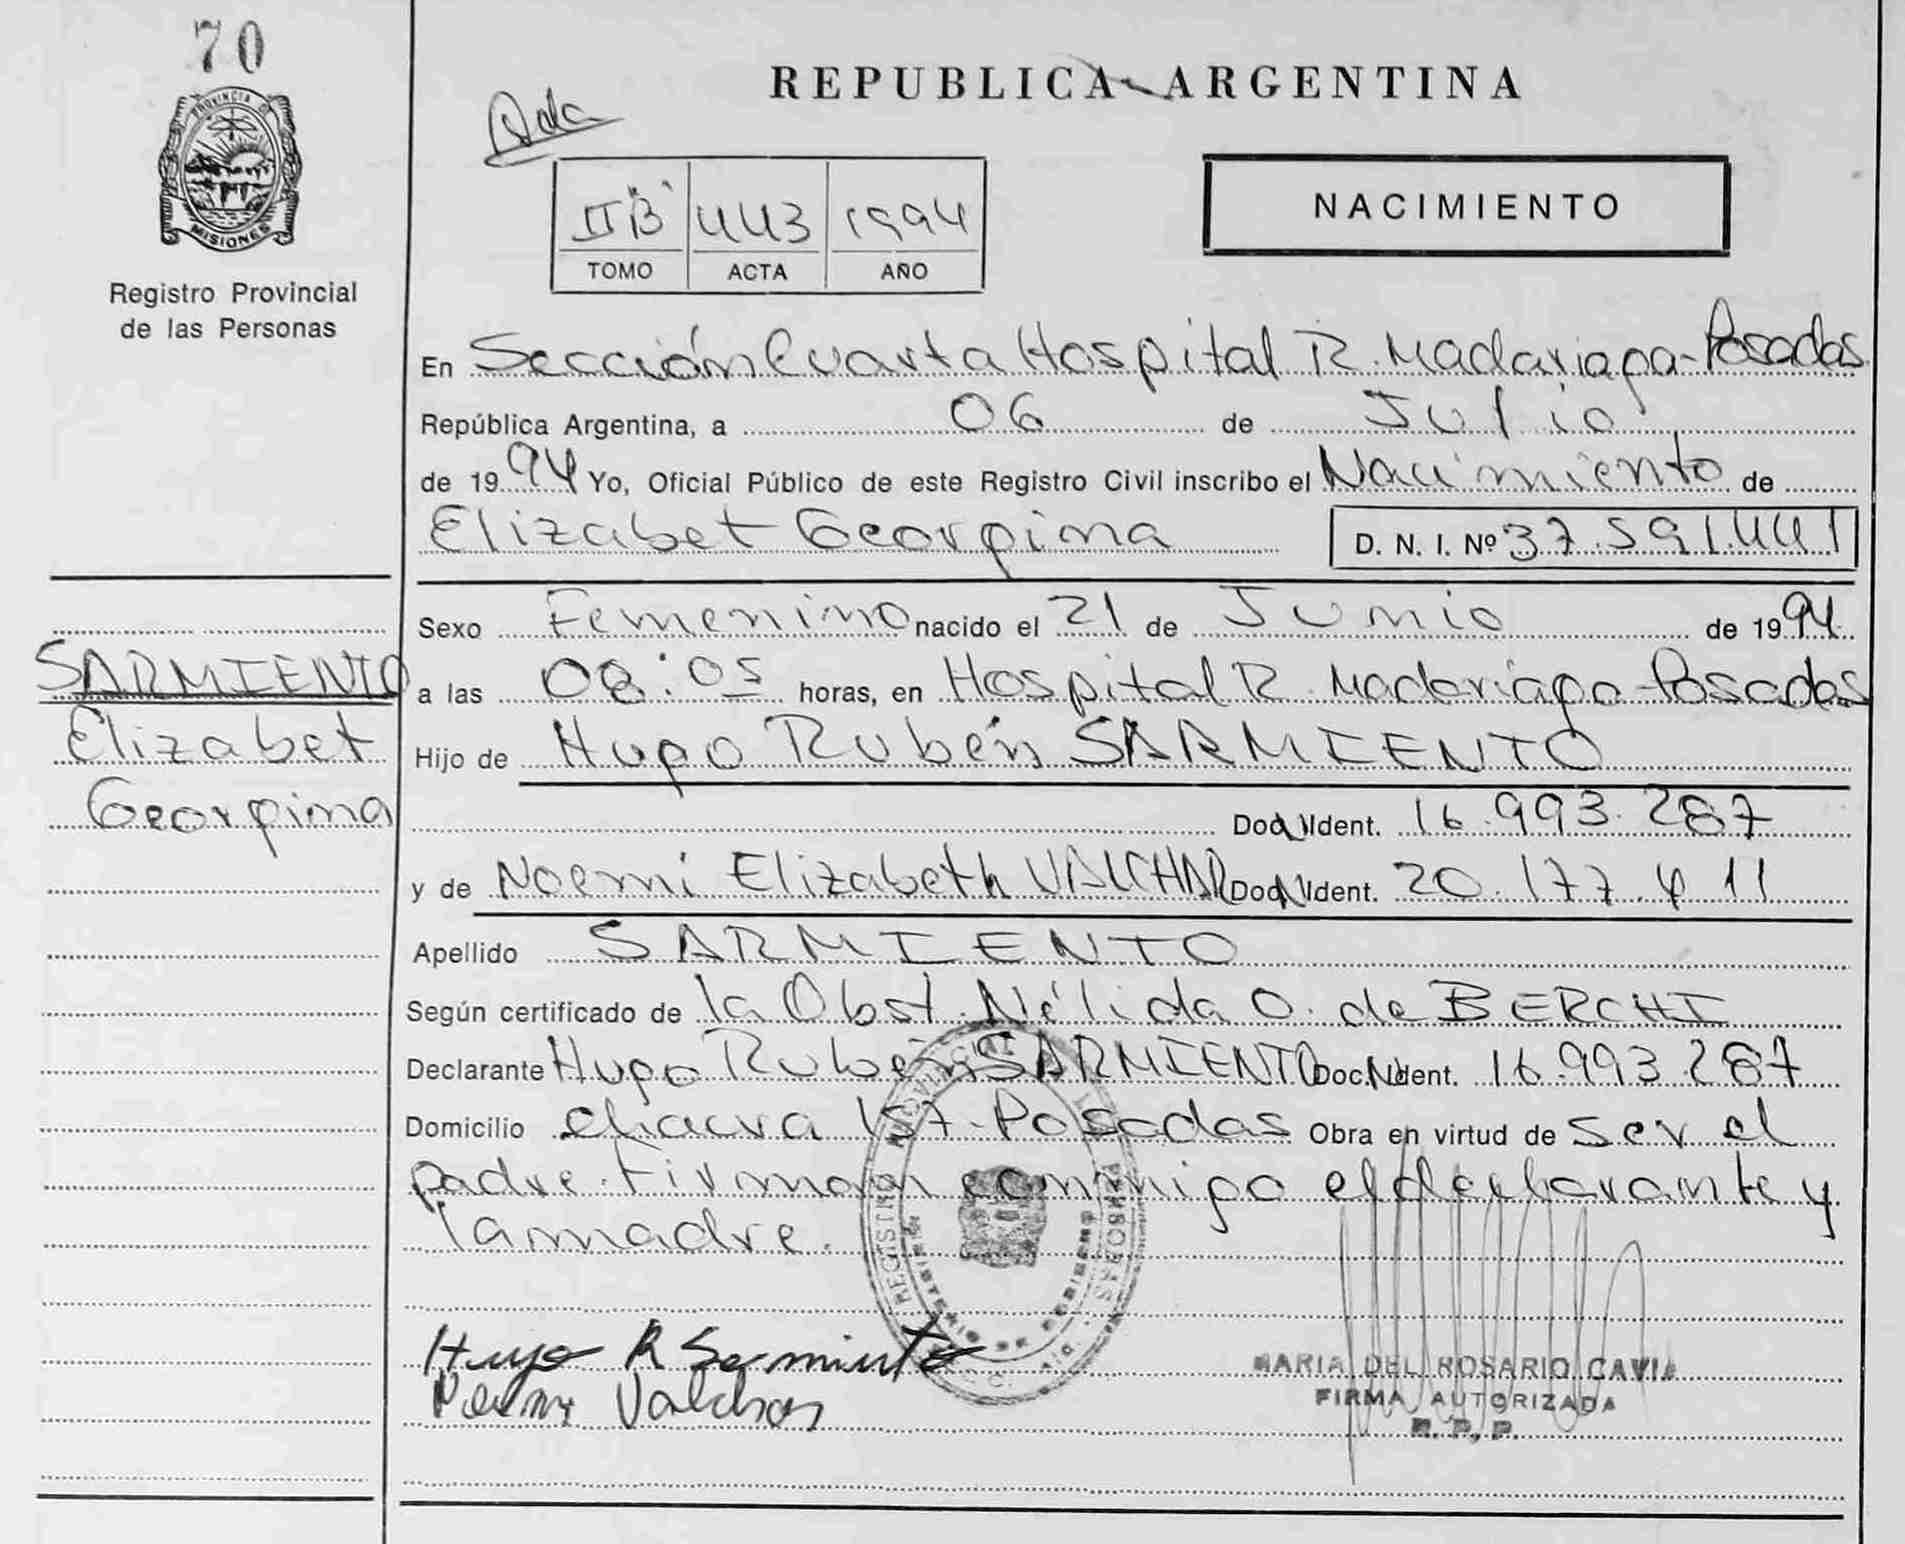 70
PROVINCIA D
MISIONES
Registro Provincial
de las Personas
REPUBLICA ARGENTINA
IIB 443 1994
TOMO ACTA AÑO
NACIMIENTO
En Sección Cuarta Hospital R. Madariaga-Posadas
República Argentina, a 06 de Julio
de 1994 Yo, Oficial Público de este Registro Civil inscribo el Nacimiento de
Elizabet Georgina D. N. I. Nº 37.591.441
Sexo Femenino nacido el 21 de Junio de 1994
a las 08:05 horas, en Hospital R. Madariaga-Posadas
Hijo de Hugo Rubén SARMIENTO
Doc. Ident. 16.993.287
y de Noemi Elizabeth VALCHAR Doc. Ident. 20.177.411
Apellido SARMIENTO
Según certificado de la Obst. Nélida O. de BERCHI
Declarante Hugo Rubén SARMIENTO Doc. Ident. 16.993.287
Domicilio chacra 157-Posadas Obra en virtud de ser el
padre. Firman conmigo el declarante y
la madre.
SARMIENTO
Elizabet
Georgina
REGISTRO PROVINCIAL PERSONAS
MINISTERIO DE GOBIERNO
Hugo R Sarmiento
MARIA DEL ROSARIO CAVIA
FIRMA AUTORIZADA
R. P. P.